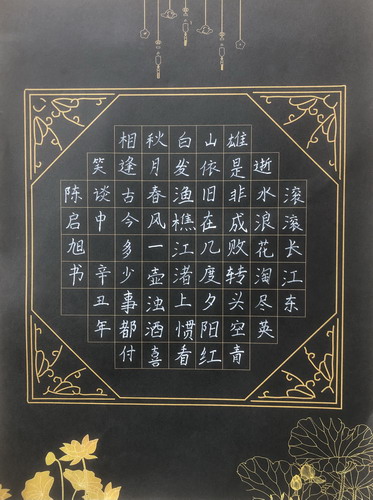 滚滚长江东
逝水浪花淘尽英
雄是非成败转头空青
山依旧在几度夕阳红
白发渔樵江渚上惯看
秋月春风一壶浊酒喜
相逢古今多少事都付
笑谈中 辛丑年
陈启旭书